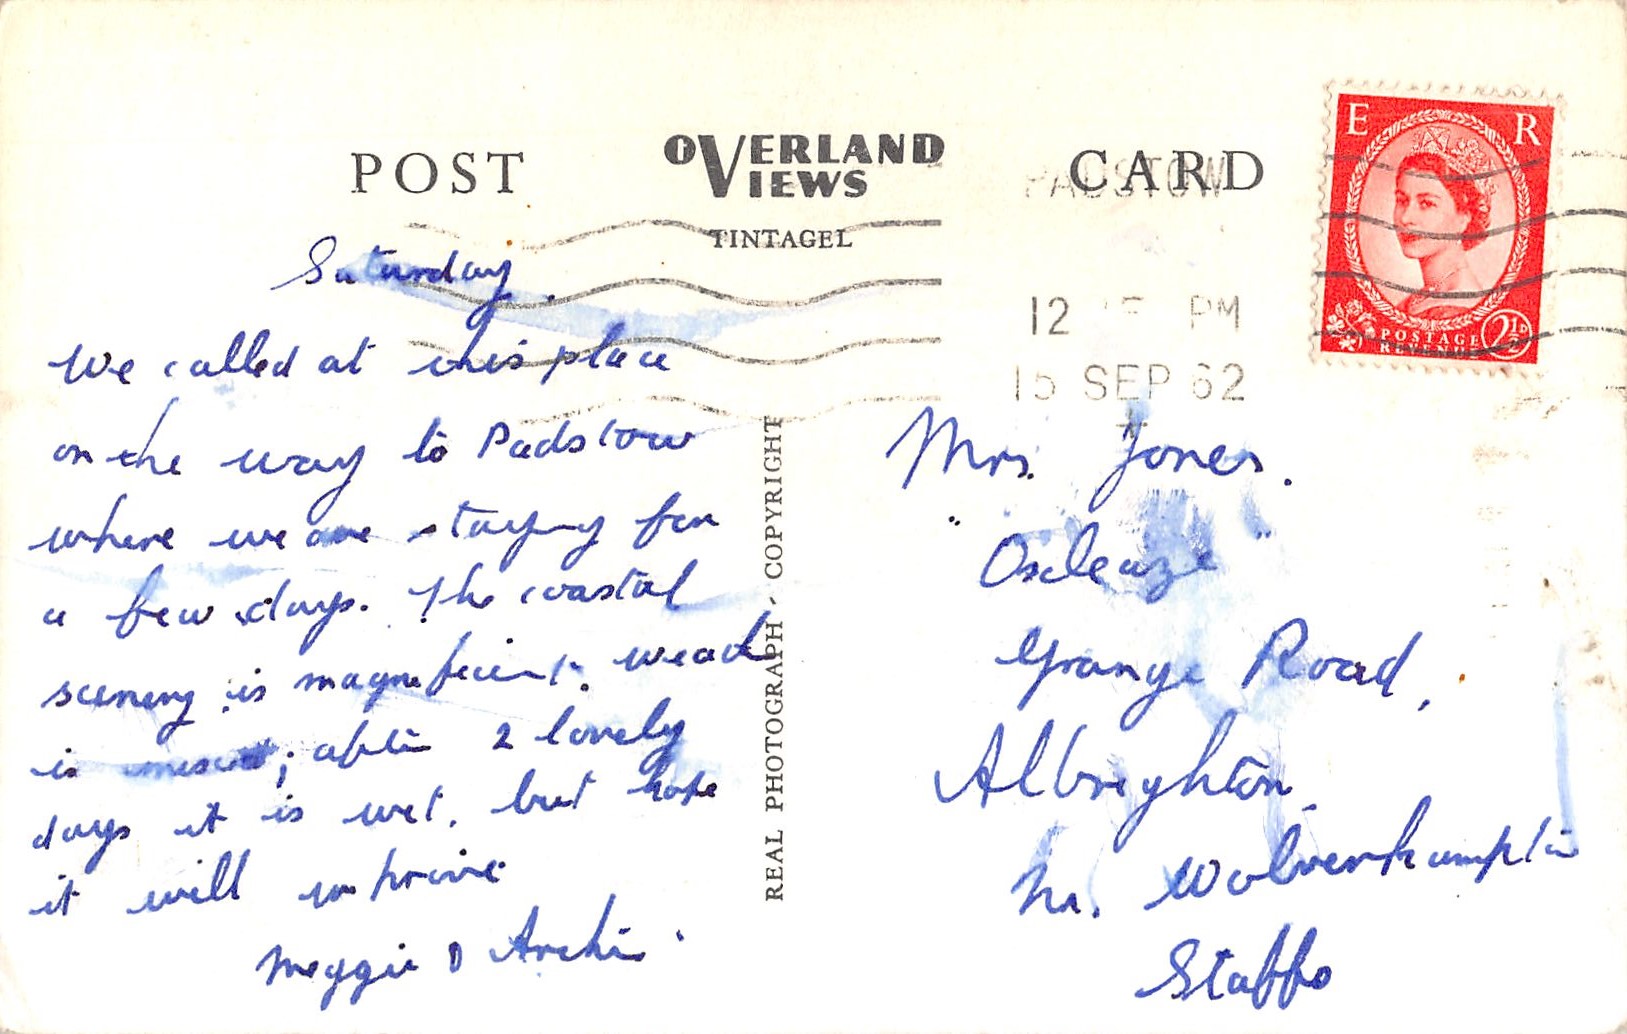 POST
OVERLAND
VIEWS
CARD
TINTAGEL
PADSTOW
12 PM
15 SEP 62
E R
POSTAGE
REVENUE
2½D
Saturday.
We called at this place
on the way to Padstow
where we are staying for
a few days. The coastal
scenery is magnificent. Weath
is ; after 2 lovely
days it is wet, but hope
it will improve
Meggie & Archie.
REAL PHOTOGRAPH · COPYRIGHT
Mrs. Jones.
Grange Road,
Albrighton
Nr. Wolverhampton
Staffs